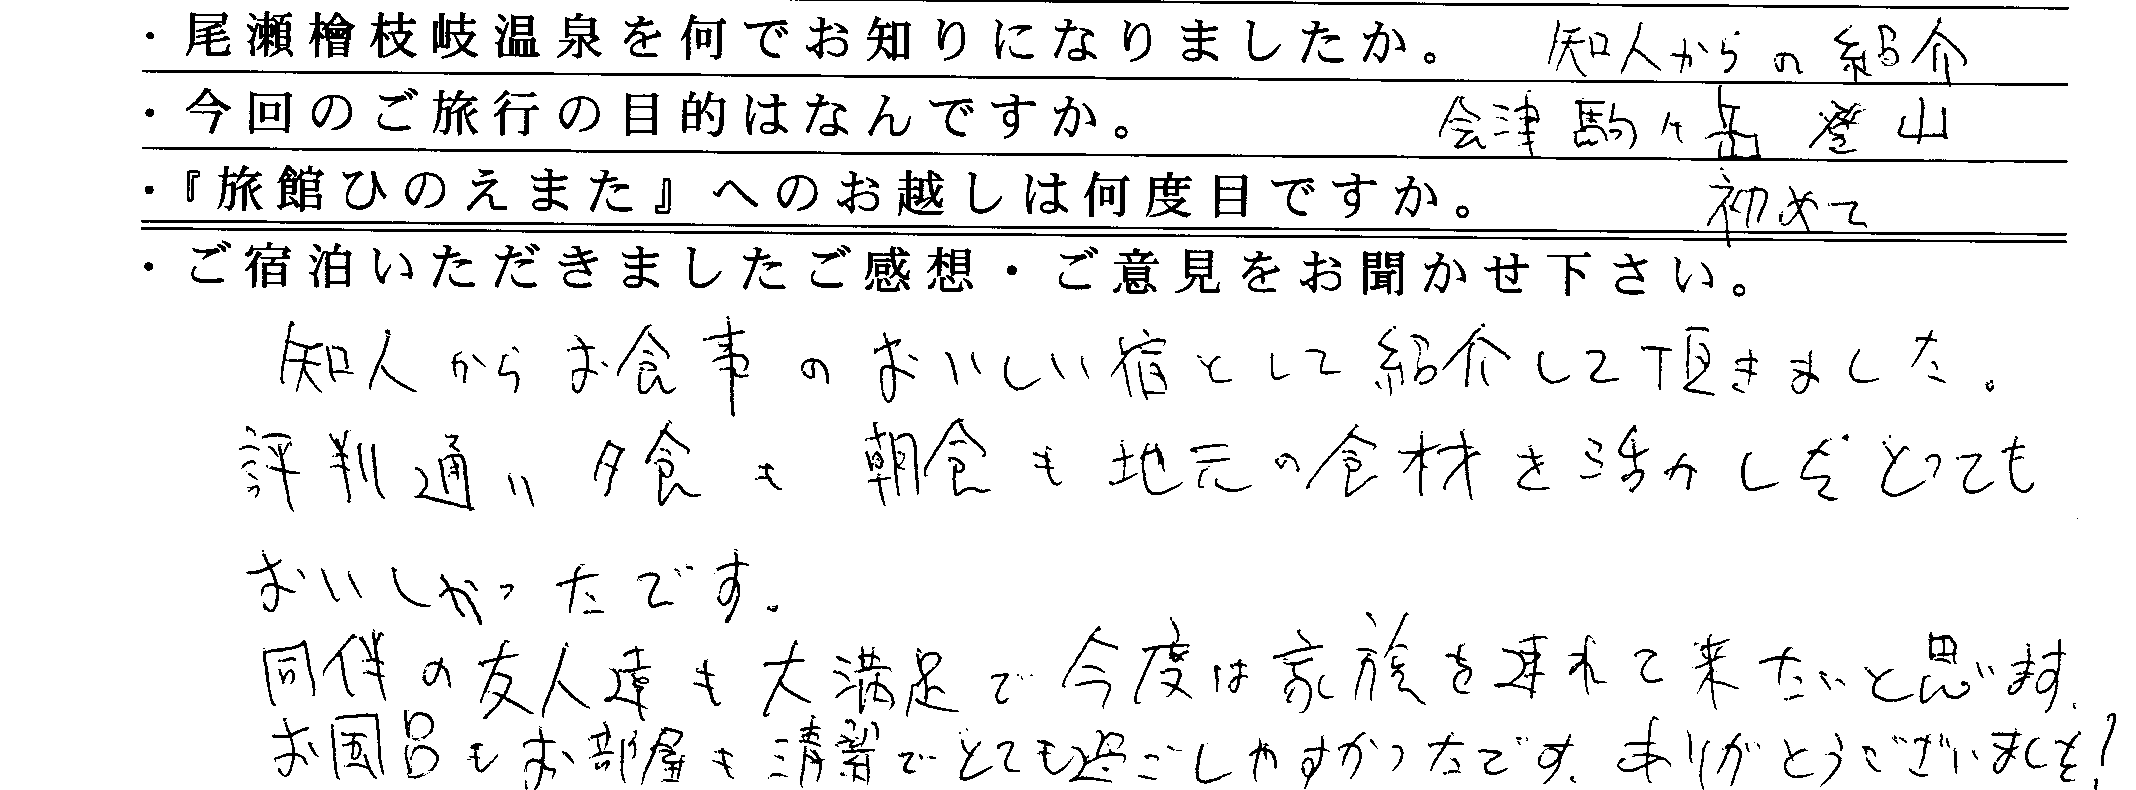 ・尾瀬檜枝岐温泉を何でお知りになりましたか。 知人からの紹介
・今回のご旅行の目的はなんですか。 会津駒ケ岳 登山
・『旅館ひのえまた』へのお越しは何度目ですか。 初めて
・ご宿泊いただきましたご感想・ご意見をお聞かせ下さい。
知人からお食事のおいしい宿として紹介して頂きました。
評判通り夕食も朝食も地元の食材を活かしたとっても
おいしかったです。
同伴の友人達も大満足で今度は家族を連れて来たいと思います。
お風呂もお部屋も清潔でとても過ごしやすかったです。ありがとうございました!